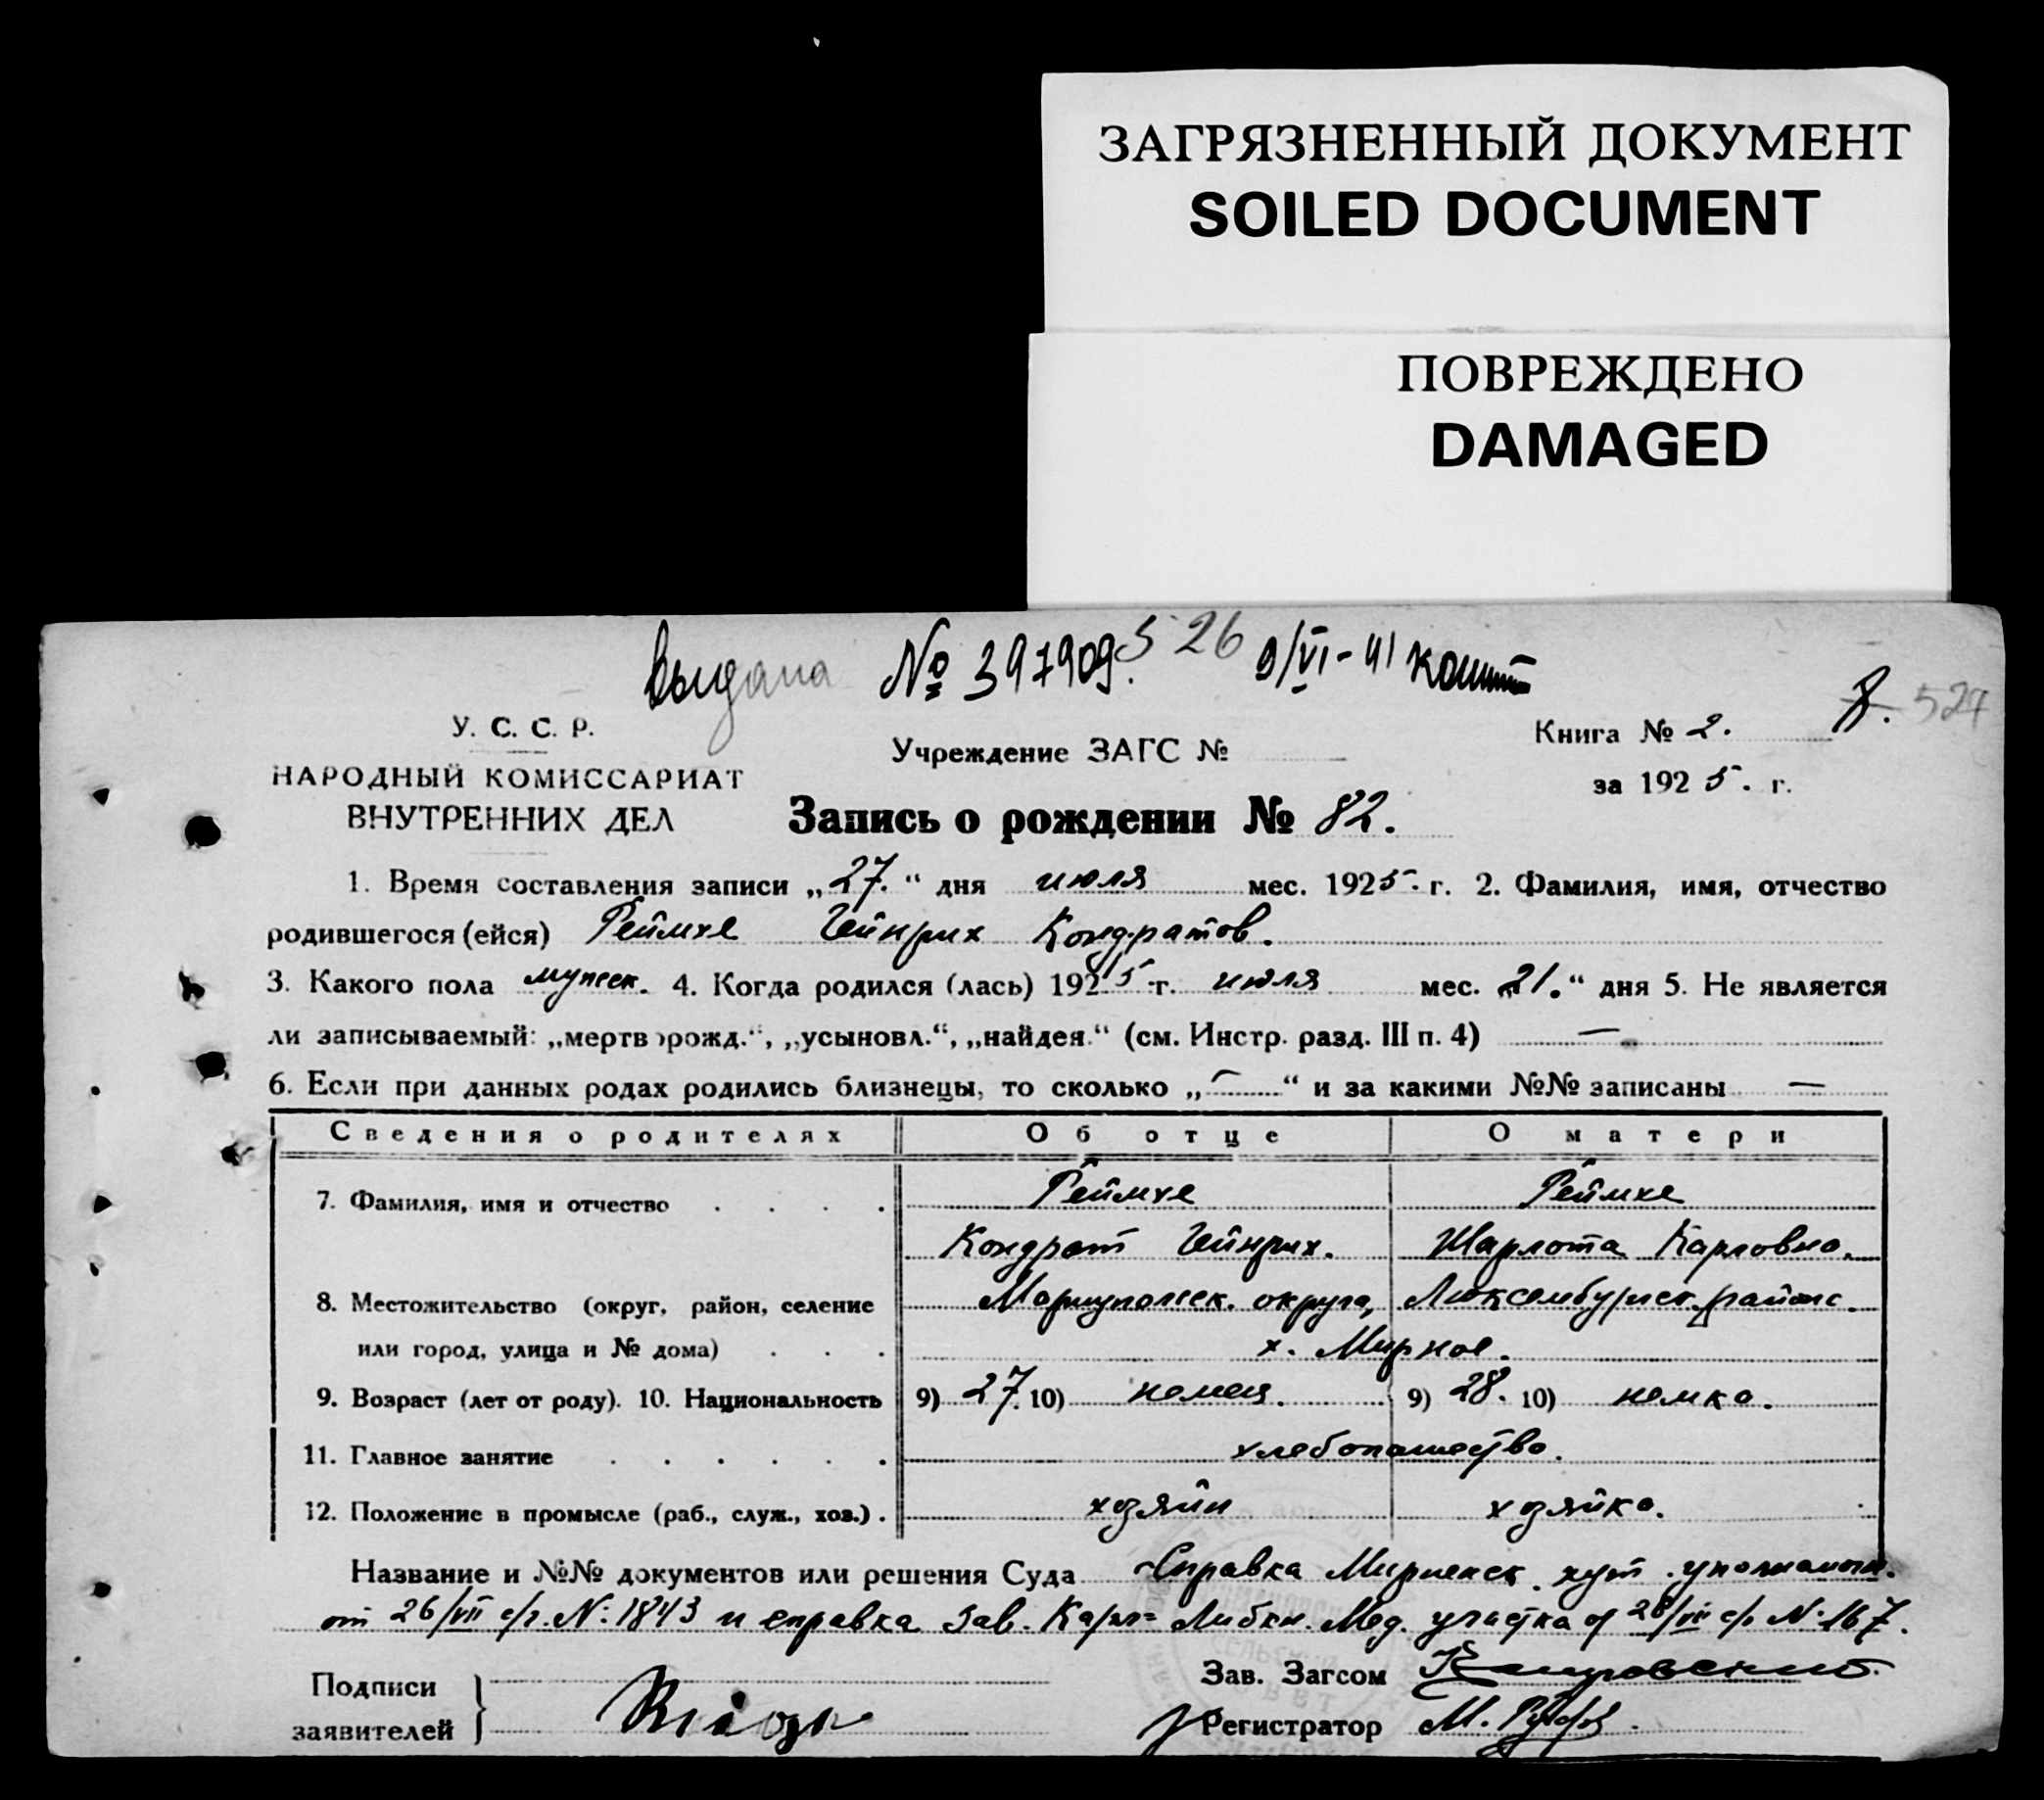 ЗАГРЯЗНЕННЫЙ ДОКУМЕНТ
SOILED DOCUMENT
ПОВРЕЖДЕНО
DAMAGED
выдана № 397909. 526 9/VI-41
8. 527
У. С. С. Р.
НАРОДНЫЙ КОМИССАРИАТ
ВНУТРЕННИХ ДЕЛ
Учреждение ЗАГС №
Книга № 2.
за 1925. г.
Запись о рождении № 82.
1. Время составления записи „27.“ дня июля мес. 1925. г. 2. Фамилия, имя, отчество
родившегося (ейся) Реймхе Гейнрих Кондратов.
3. Какого пола мужск. 4. Когда родился (лась) 1925 г. июля мес. „21.“ дня 5. Не является
ли записываемый: „мертворожд.“, „усыновл.“, „найден.“ (см. Инстр. разд. III п. 4) —
6. Если при данных родах родились близнецы, то сколько „—“ и за какими №№ записаны —
Сведения о родителях Об отце О матери
7. Фамилия, имя и отчество . . . . Реймхе Реймхе
Кондрат Гейнрих. Шарлота Карловна.
8. Местожительство (округ, район, селение Мариупольск. округа, Люксембургск. района.
или город, улица и № дома) . . . х. Мирное.
9. Возраст (лет от роду). 10. Национальность 9) 27. 10) немец. 9) 28. 10) немка.
11. Главное занятие . . . . . . хлебопашество.
12. Положение в промысле (раб., служ., хоз.) . хозяин хозяйка.
Название и №№ документов или решения Суда Справка Мирненск. хут. уполномоч.
от 26/VII с/г. N: 1843 и справка Зав. Карл= Либкн. Мед. участка от 26/VII с/г N. 167.
Подписи
заявителей
Зав. Загсом
Регистратор М.